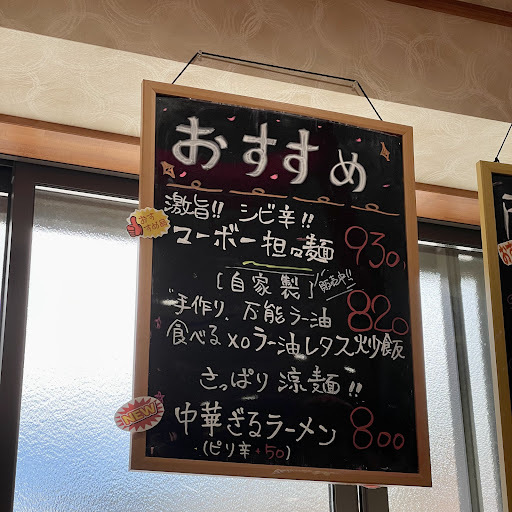 おすすめ
激旨!! シビ辛!!
マーボー担々麺 930
[自家製] 販売中!!
"手作り、万能ラー油 820
食べるXOラー油レタス炒飯
さっぱり涼麺!!
NEW
中華ざるラーメン 800
(ピリ辛+50)